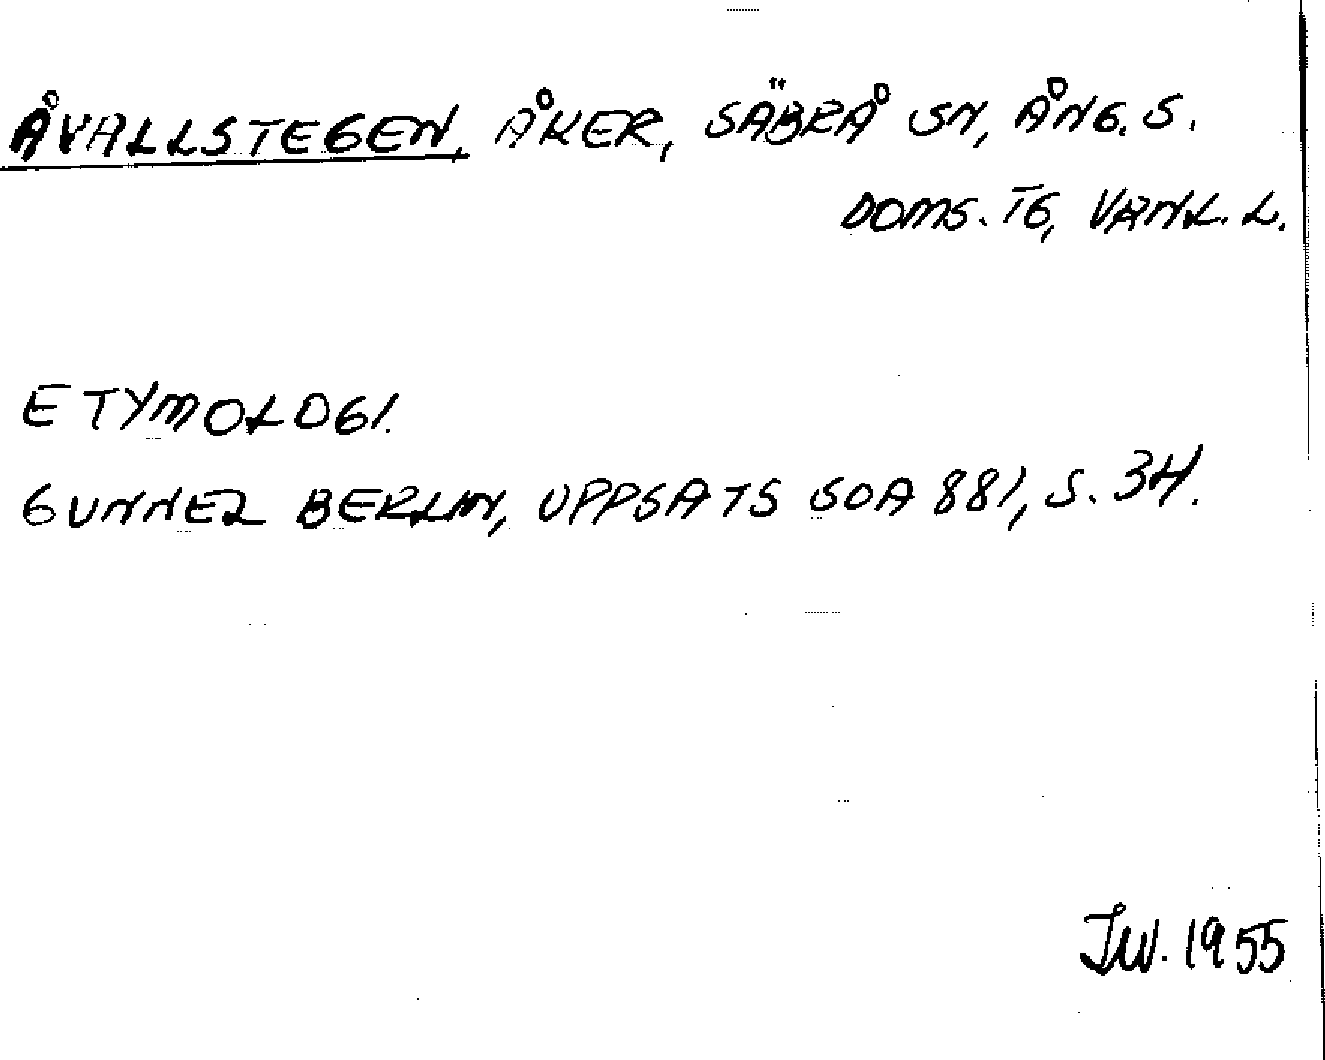 ÅVALLSTEGEN, ÅKER, SÄBRÅ SN, ÅNG. S.
DOMS. TG, VANL. L.
ETYMOLOGI.
GUNNEL BERLIN, UPPSATS SOA 881, S. 34.
JW. 1955